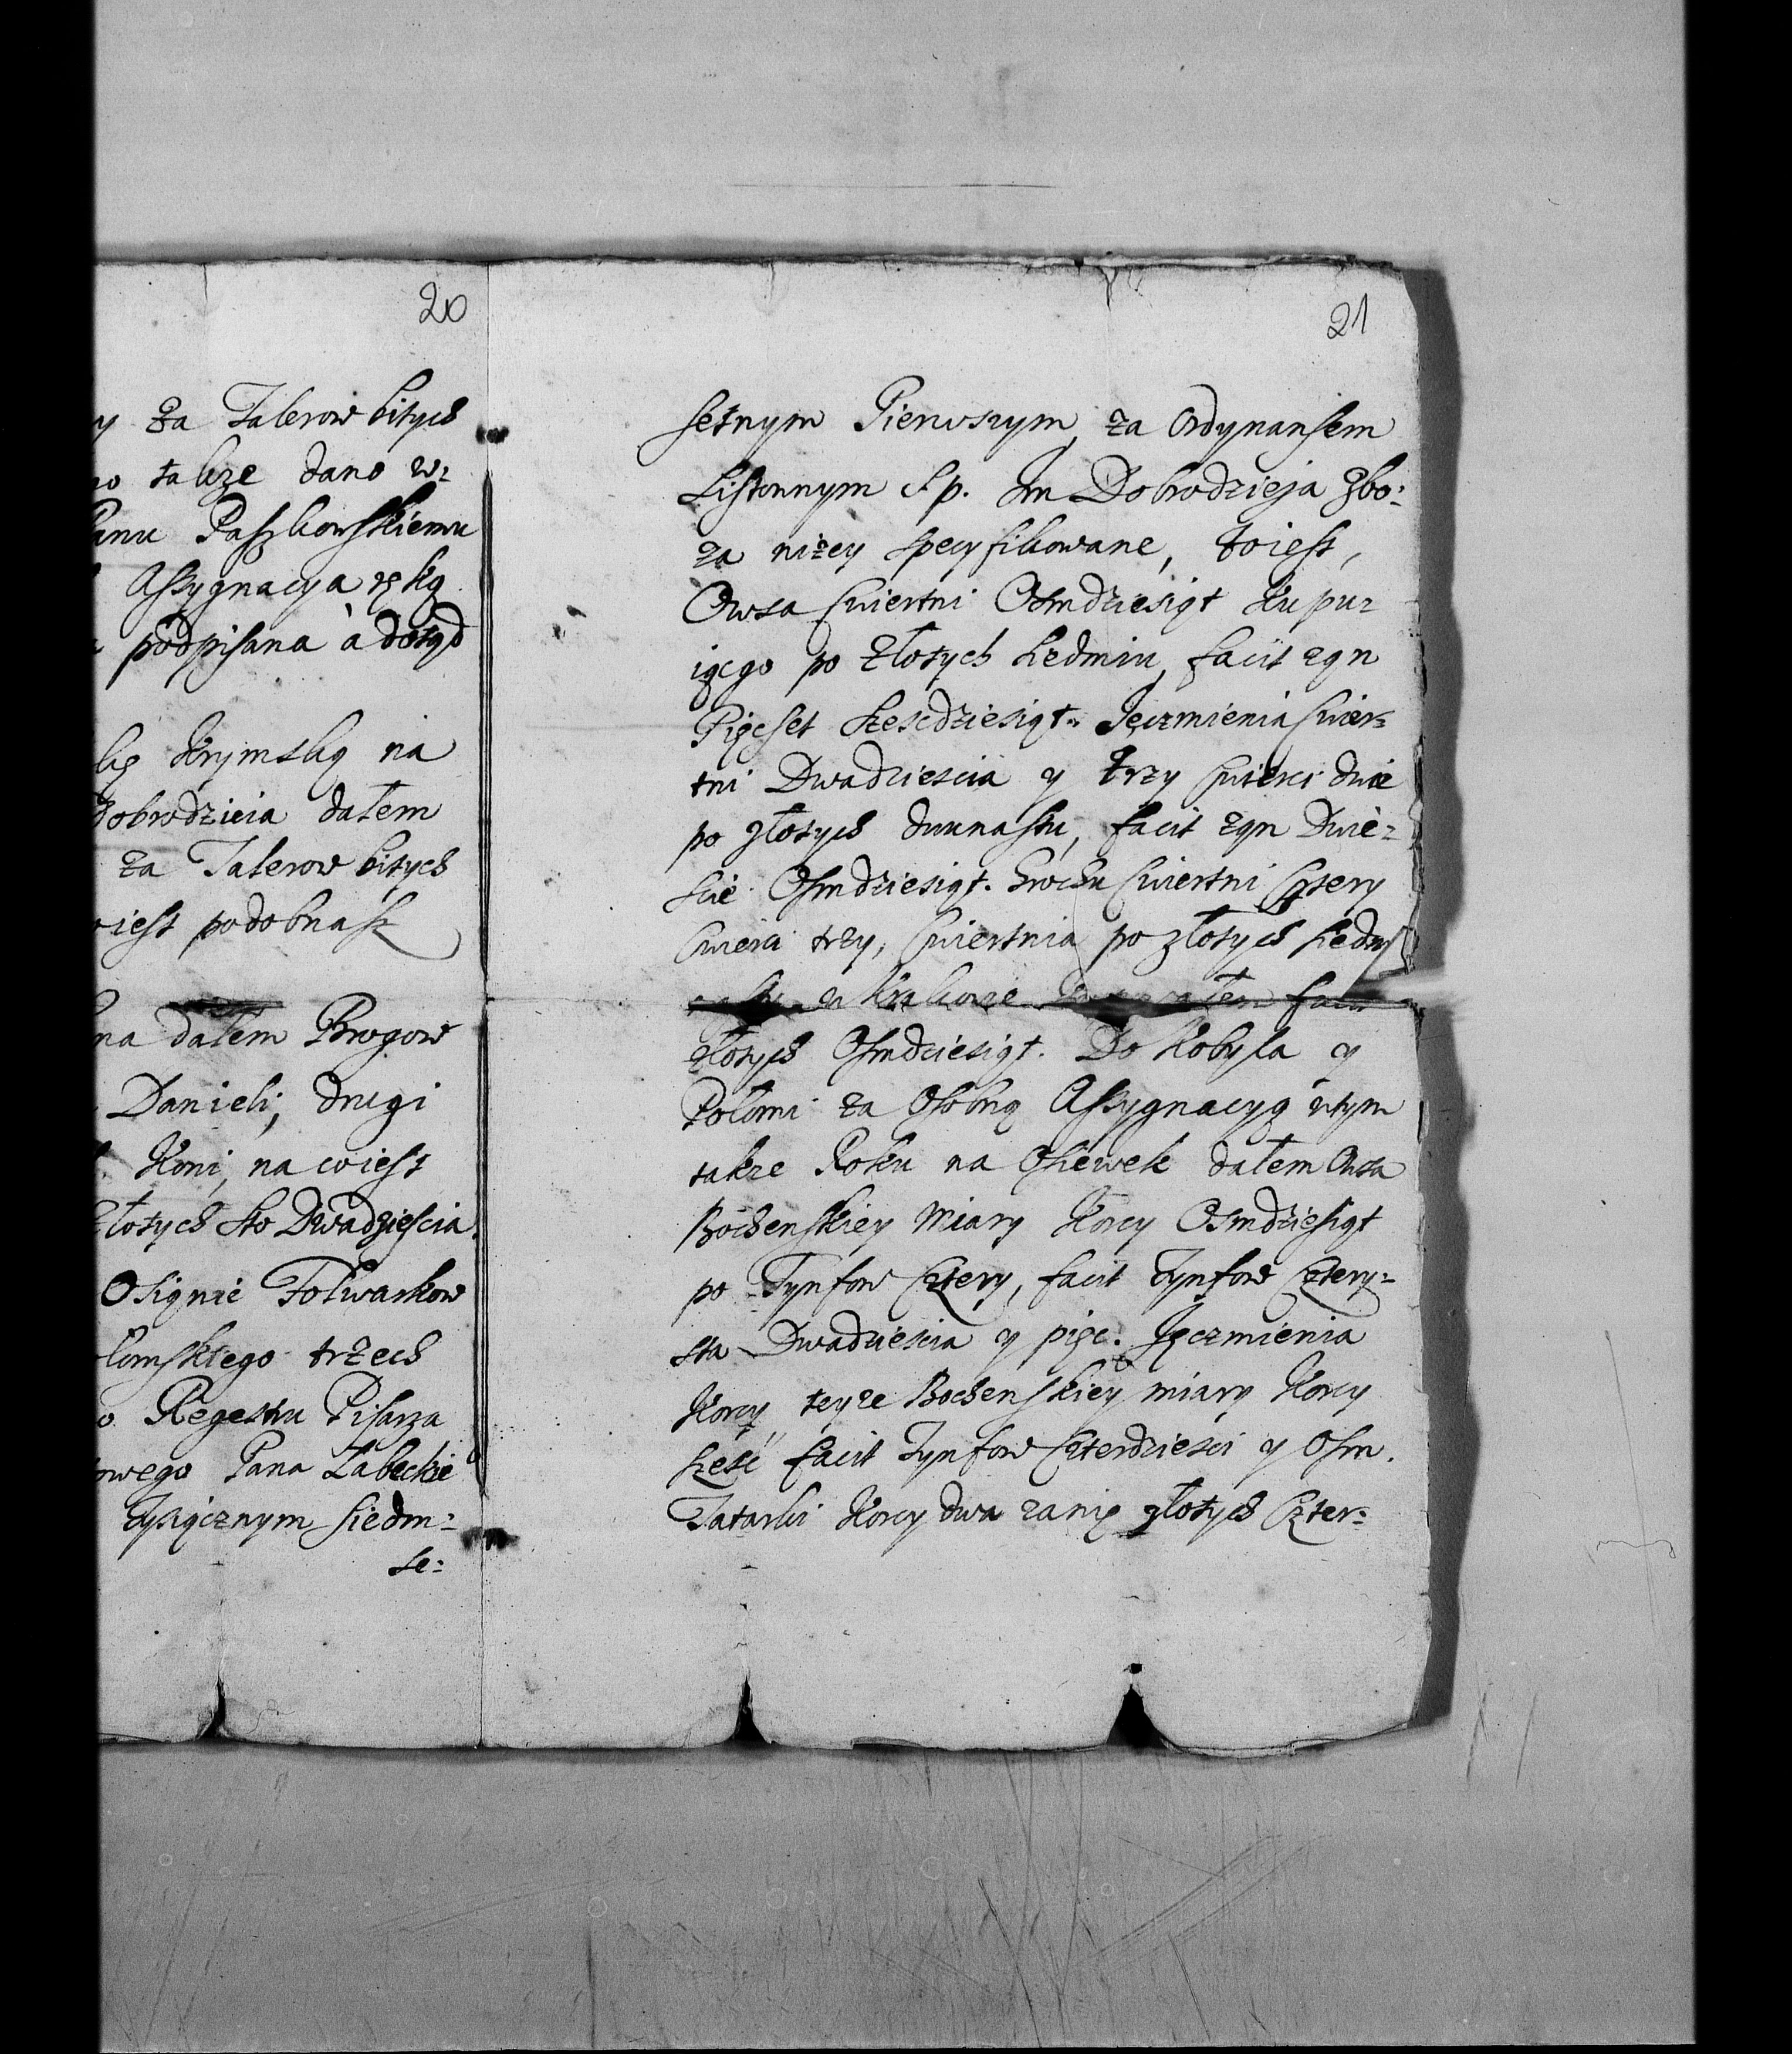 20
y za Talerow bitych
takze dano w:
Panu Paszkowskiemu
Assygnacya ręką
podpisana à dotąd
Krymską na
Dobrodzieia dałem
za Talerow bitych
iest podobnasz
na dałem Brogow
Danieli, drugi
Koni, na co iest
Złotych Sto Dwadziescia
Osignie Folwarkow
lomskiego trzech
Regestru Pisarza
owego Pana Łabęckie
Tysiącznym Siedm:
se:
21
setnym Pierwszym, za Ordynansem
Listownym S. p. Im Dobrodzieja Zbo:
za niżey specyfikowane, toiest,
Owsa Cwiertni Osmdziesiąt Kupu:
iącego po Złotych Siedmiu, facit ząn
Pięcset Szescdziesiąt. Jęczmienia Cwier:
tni Dwadziescia y trzy Cwierci dwie
po złotych dwunastu, facit ząn Dwie:
scie Osmdziesiąt. Grochu Cwiertni Cztery
Cwierci trzy, Cwiertnia po złotych siedm
w Krakowie facit
złotych Osmdziesiąt. Do Kobyla y
Połomi za Osobną Assygnacyą wtym
takze Roku na Osiewek dałem Owsa
Bochenskiey Miary Korcy Osmdziesiąt
po Tynfow Cztery, facit Tynfow Cztery:
sta Dwadziescia y pięc. Jęczmienia
Korcy teyze Bochenskiey miary Korcy
szesc facit Tynfow Czterdziesci y Osm.
Tatarki Korcy dwa zanię złotych Czter: